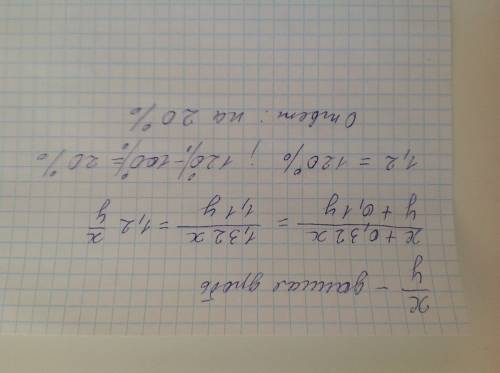 x/y - данная дробь
(x + 0,32x)/(y + 0,1y) = 1,32x/1,1y = 1,2 x/y
1,2 = 120% ; 120% - 100% = 20%
Ответ: на 20%